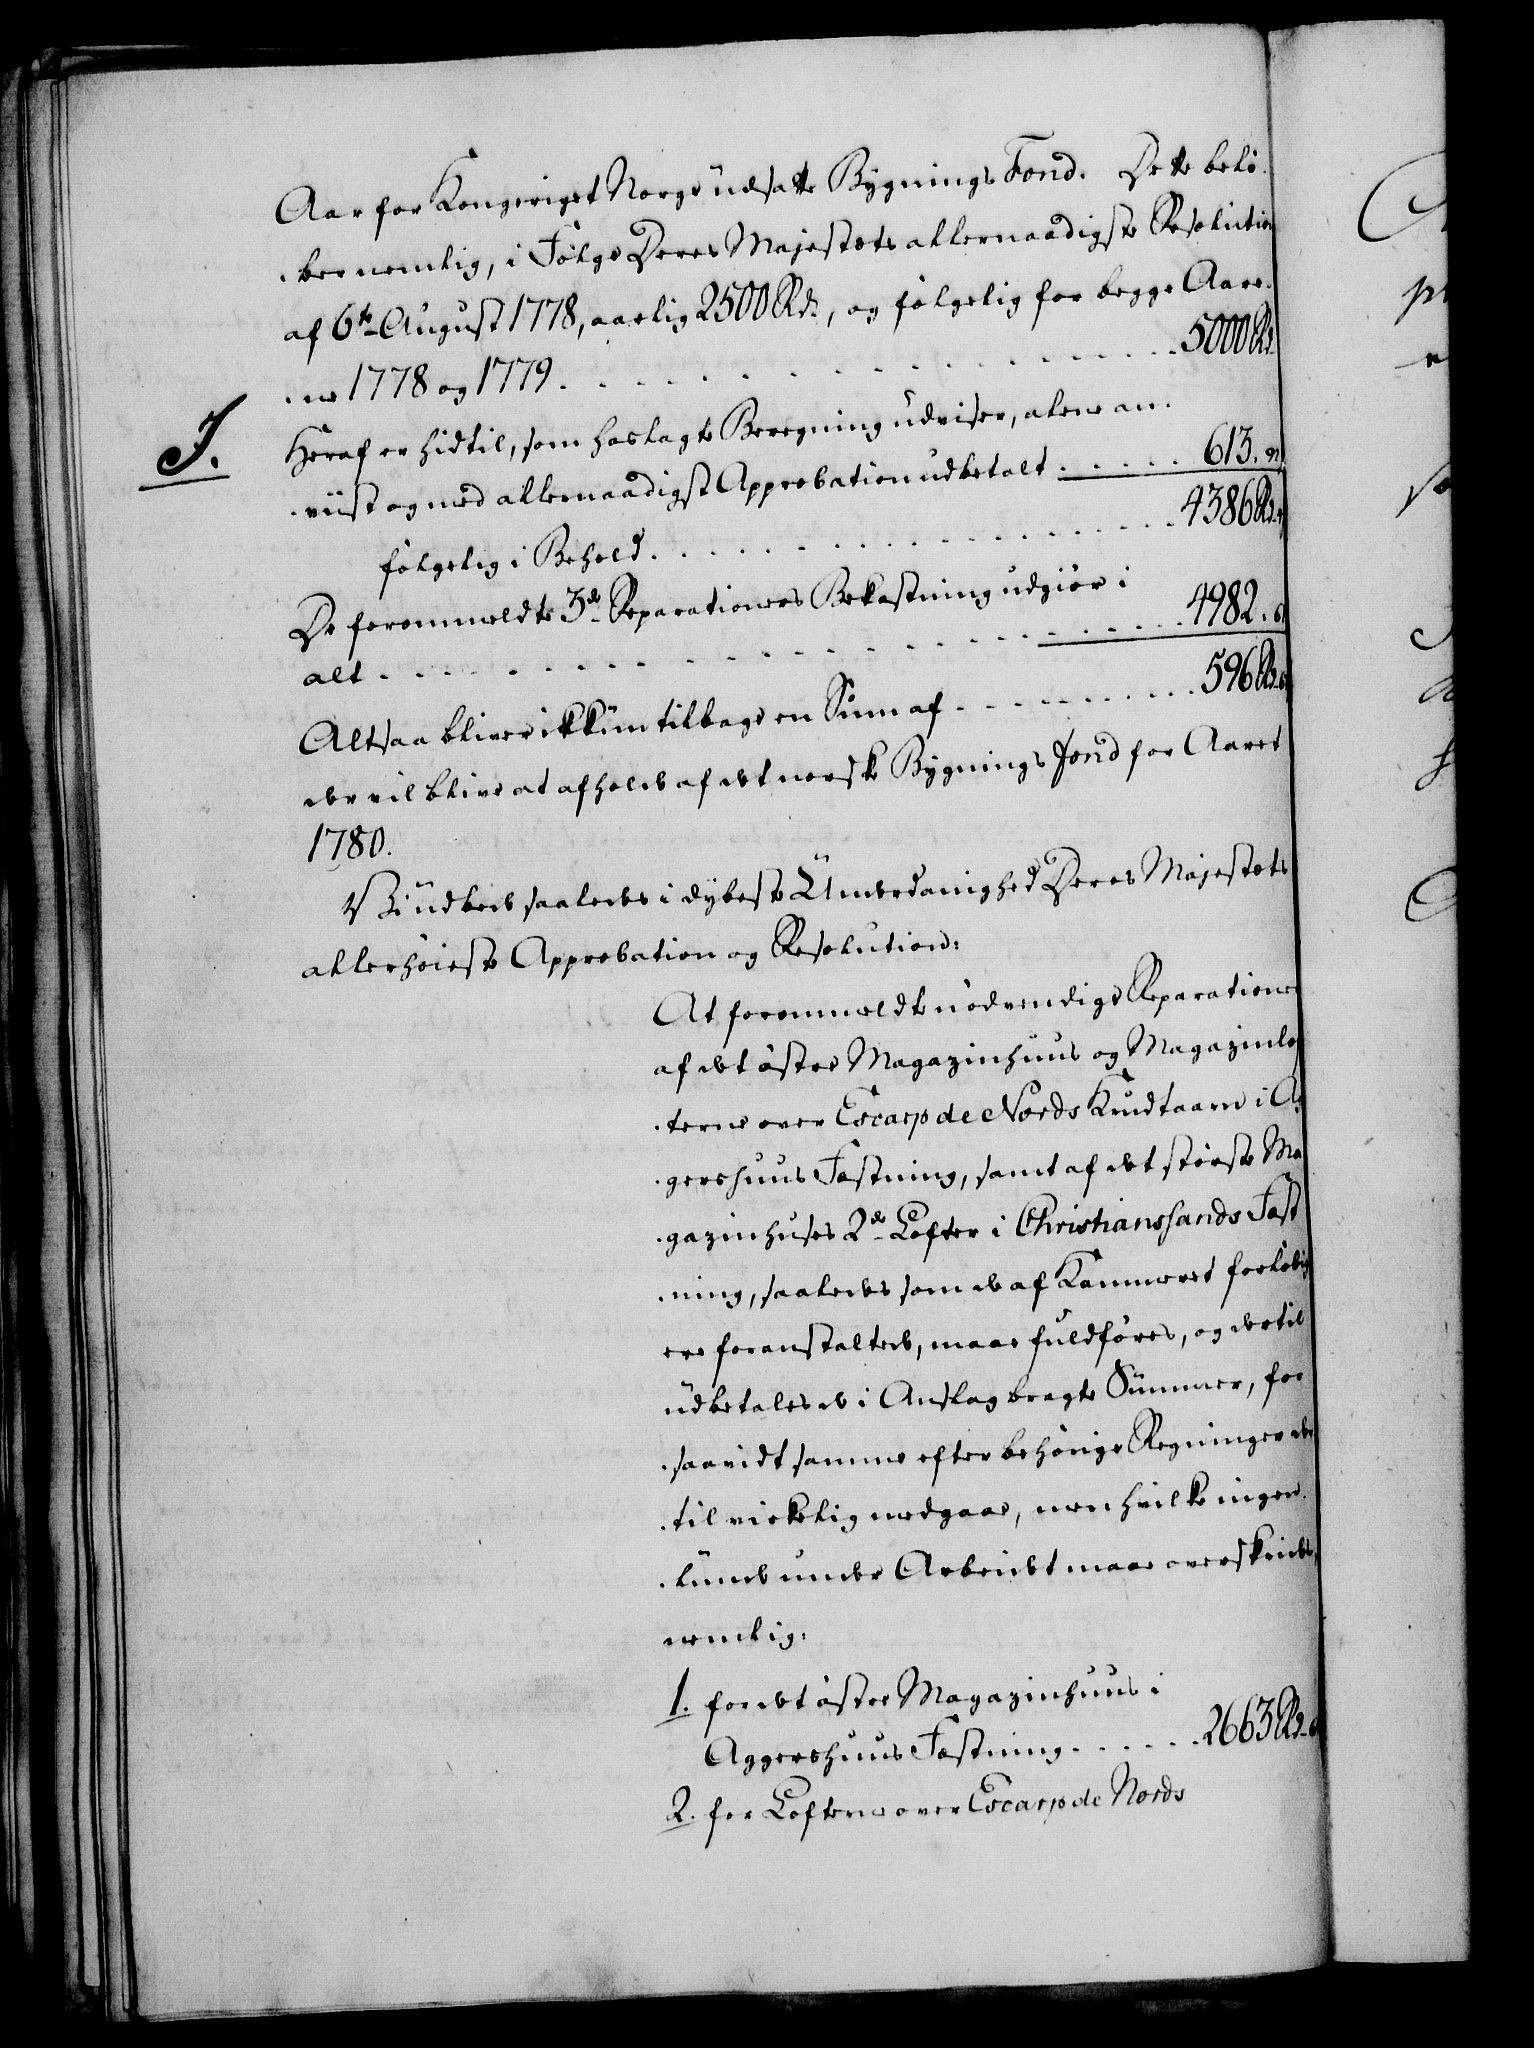 Aar for Kongeriget Norge udsatte Bygnings Fond. Dette belø-
-ber nemlig, i Følge Deres Majestets allernaadigste Resolution
af 6te August 1778, aarlig 2500 Rd., og følgelig for begge Aare-
-ne 1778 og 1779 . . . . . . . . . . 5000 Rd.
J. Heraf er hidtil, som hoslagte Beregning udviser, alene an-
-viist og med allernaadigst Approbation udbetalt . . . . . 613.
følgelig i Behold . . . . . . . . . . 4386 Rd.
De foranmeldte 3de Reparationers Bekostning udgiør i
alt . . . . . . . . . . 4982.
Altsaa bliver ikkun tilbage en Sum af . . . . . . . . . 596 Rd.
der vil blive at afholde af det norske Bygnings Fond for Aaret
1780.
Vi udbede saaledes i dybeste Underdanighed Deres Majestets
allerhøieste Approbation og Resolution:
At foranmeldte nødvendige Reparationer
af det østre Magazinhuus og Magazinlof
-terne over Escarp de Nords Krudtaarn i Ag
-gershuus Fæstning, samt af det største Ma
-gazinhuses 2de Lofter i Christianssands Fæst
-ning, saaledes som de af Kammeret forløbig
ere foranstaltede, maae fuldføres, og dertil
udbetales de i Anslag bragte Summer, for
-saavidt samme efter behørige Regninger der
-til virkelig medgaae, men hvilke ingen-
-lunde under Arbeidet maae overskrides,
nemlig:
1. for det østre Magazinhuus i
Aggershuus Fæstning . . . . . . 2663 Rd.
2. for Lofterne over Escarp de Nords